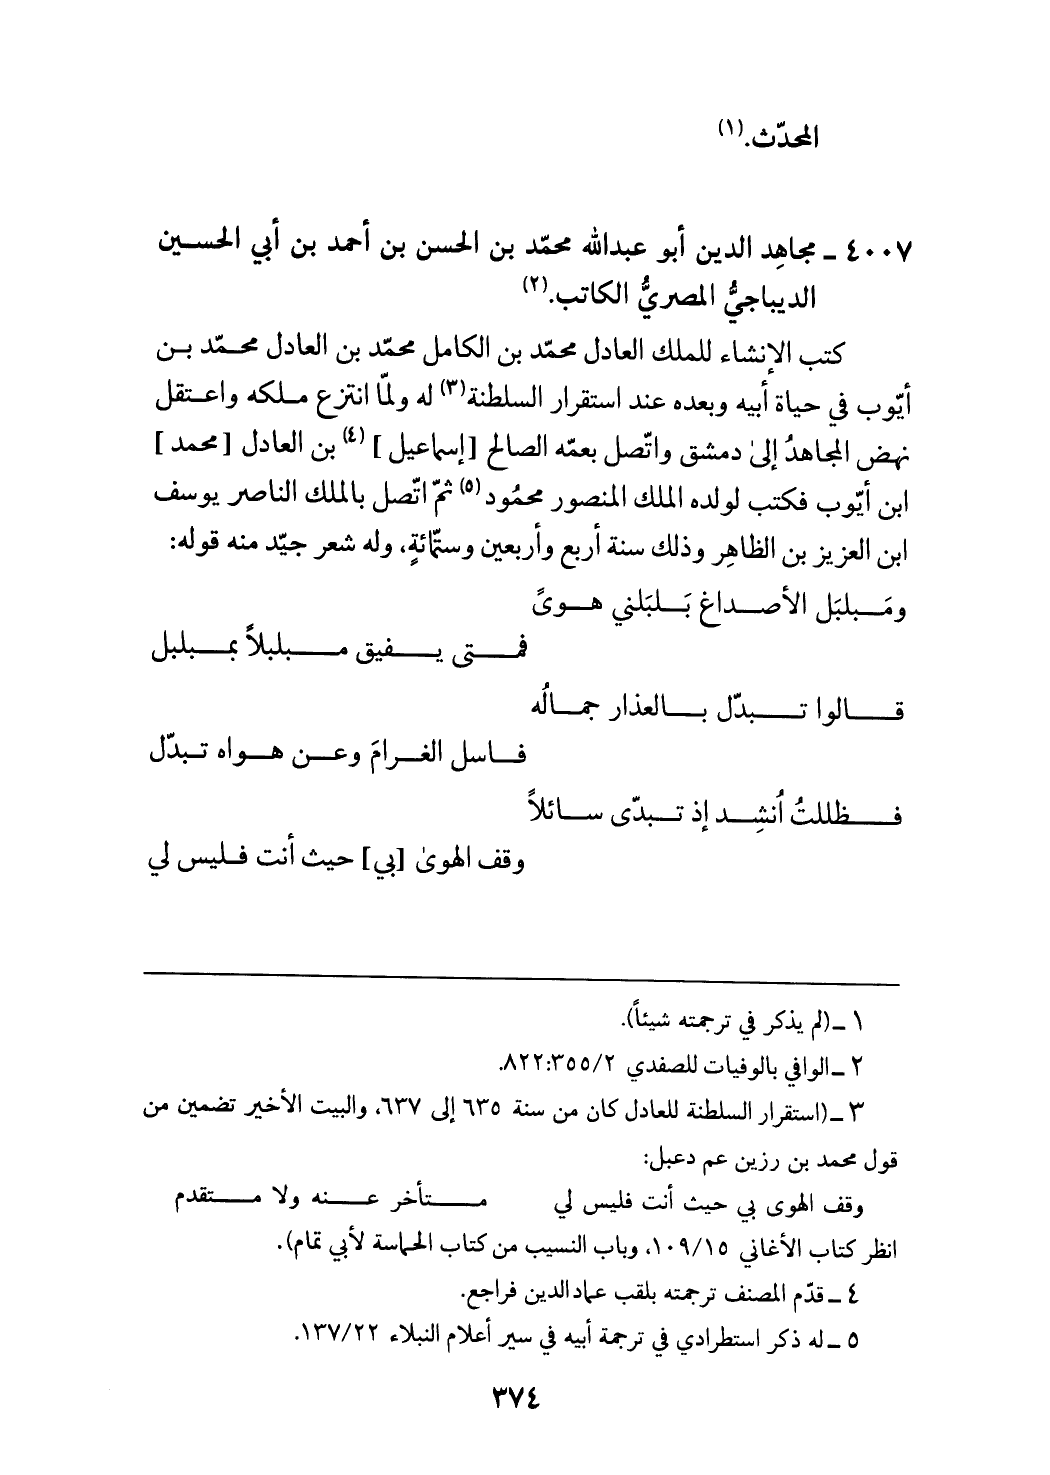 المحدّث.(١)
٤٠٠٧ ـ مجاهِد الدين أبو عبدالله محمّد بن الحسن بن أحمد بن أبي الحسين
الديباجيُّ المصريُّ الكاتب.(٢)
كتب الإنشاء للملك العادل محمّد بن الكامل محمّد بن العادل محمّد بن
أيّوب في حياة أبيه وبعده عند استقرار السلطنة(٣) له ولمّا انتزع ملكه واعتقل
نهض المجاهدُ إلىٰ دمشق واتّصل بعمّه الصالح [إسماعيل](٤) بن العادل [محمد]
ابن أيّوب فكتب لولده الملك المنصور محمُود(٥) ثمّ اتّصل بالملك الناصر يوسف
ابن العزيز بن الظاهِر وذلك سنة أربع وأربعين وستّمائةٍ، وله شعر جيّد منه قوله:
ومَبلبَل الأصداغ بَلبَلني هوىً
فمتى يفيق مبلبلاً بمبلبل
قالوا تبدّل بالعذار جمالُه
فاسل الغرامَ وعن هواه تبدّل
فظللتُ اُنشِد إذ تبدّى سائلاً
وقف الهوىٰ [بي] حيث أنت فليس لي
١ ـ(لم يذكر في ترجمته شيئاً).
٢ ـالوافي بالوفيات للصفدي ٨٢٢:٣٥٥/٢.
٣ ـ(استقرار السلطنة للعادل كان من سنة ٦٣٥ إلى ٦٣٧، والبيت الأخير تضمين من
قول محمد بن رزين عم دعبل:
وقف الهوى بي حيث أنت فليس لي    متأخر عنه ولا متقدم
انظر كتاب الأغاني ١٠٩/١٥، وباب النسيب من كتاب الحماسة لأبي تمام).
٤ ـ قدّم المصنف ترجمته بلقب عمادالدين فراجع.
٥ ـ له ذكر استطرادي في ترجمة أبيه في سير أعلام النبلاء ١٣٧/٢٢.
٣٧٤